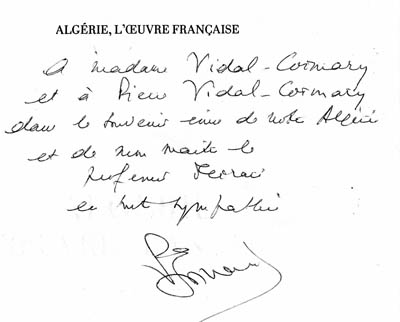 ALGÉRIE, L'ŒUVRE FRANÇAISE
A madame Vidal-Cormary
et à Pierre Vidal-Cormary
dans le souvenir ému de notre Algérie
et de mon maître le
professeur
en toute sympathie